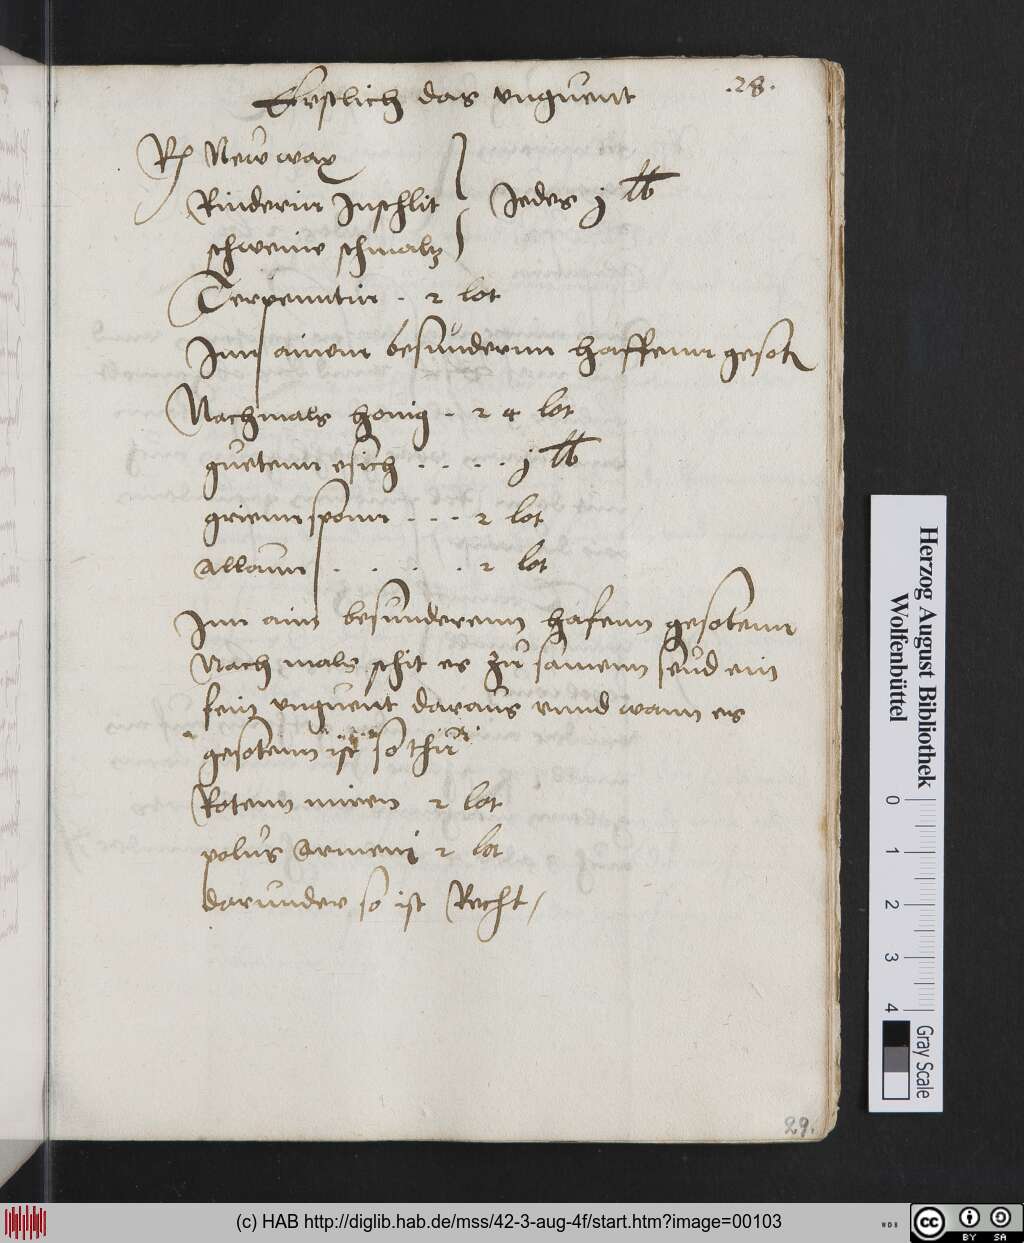 Erstlich das vnguent
.28.
Rp New wax
Rinderin Inschlit
Jedes j lb
schweine schmaltz
Terpenntin . 2 lot
Inn ainem besundernn haffenn gesot
Nachmals honig . 2 4 lot
guetenn esich . . . . j lb
grienn sponn . . . 2 lot
allaun . . . . . 2 lot
Inn ain besunderenn hafenn gesotenn
Nach mals schit es zu samenn seud ein
fein vnguent daraus vnnd wann es
gesotenn ist so thu
Rotenn miren 2 lot
polus armeni 2 lot
darunder so ist Recht
29.
Herzog August Bibliothek
Wolfenbüttel
0 1 2 3 4
Gray Scale
(c) HAB http://diglib.hab.de/mss/42-3-aug-4f/start.htm?image=00103
WDB
cc BY SA